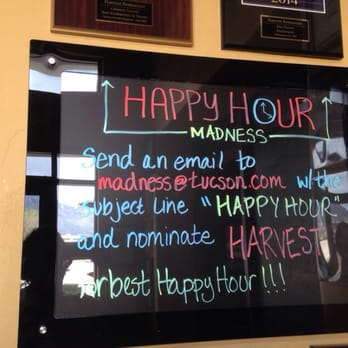 2014
HAPPY HOUR
MADNESS
Send an email to
madness@tucson.com w/the
subject line "HAPPY HOUR"
and nominate HARVEST
for best Happy Hour!!!